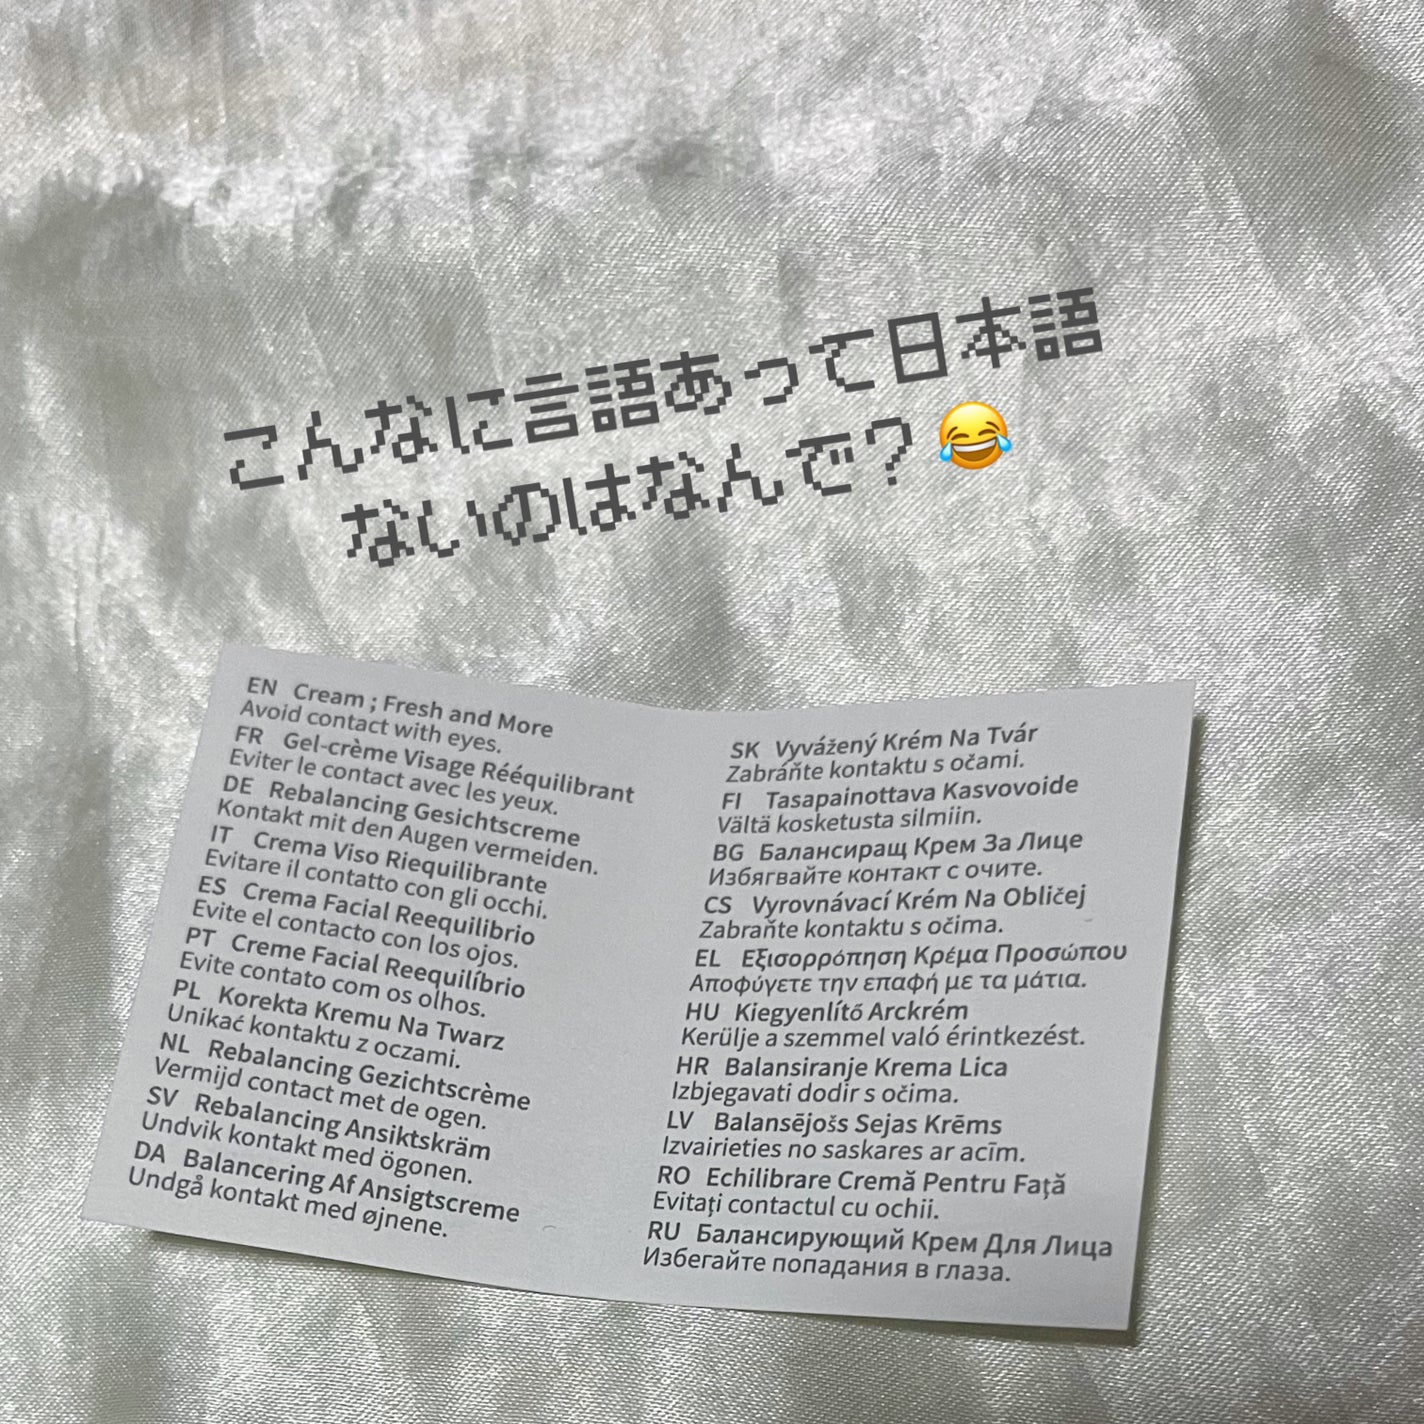 こんなに言語あって日本語
ないのはなんで？😂
EN Cream ; Fresh and More
Avoid contact with eyes.
FR Gel-crème Visage Rééquilibrant
Eviter le contact avec les yeux.
DE Rebalancing Gesichtscreme
Kontakt mit den Augen vermeiden.
IT Crema Viso Riequilibrante
Evitare il contatto con gli occhi.
ES Crema Facial Reequilibrio
Evite el contacto con los ojos.
PT Creme Facial Reequilíbrio
Evite contato com os olhos.
PL Korekta Kremu Na Twarz
Unikać kontaktu z oczami.
NL Rebalancing Gezichtscrème
Vermijd contact met de ogen.
SV Rebalancing Ansiktskräm
Undvik kontakt med ögonen.
DA Balancering Af Ansigtscreme
Undgå kontakt med øjnene.
SK Vyvážený Krém Na Tvár
Zabráňte kontaktu s očami.
FI Tasapainottava Kasvovoide
Vältä kosketusta silmiin.
BG Балансиращ Крем За Лице
Избягвайте контакт с очите.
CS Vyrovnávací Krém Na Obličej
Zabraňte kontaktu s očima.
EL Εξισορρόπηση Κρέμα Προσώπου
Αποφύγετε την επαφή με τα μάτια.
HU Kiegyenlítő Arckrém
Kerülje a szemmel való érintkezést.
HR Balansiranje Krema Lica
Izbjegavati dodir s očima.
LV Balansējošs Sejas Krēms
Izvairieties no saskares ar acīm.
RO Echilibrare Cremă Pentru Față
Evitați contactul cu ochii.
RU Балансирующий Крем Для Лица
Избегайте попадания в глаза.